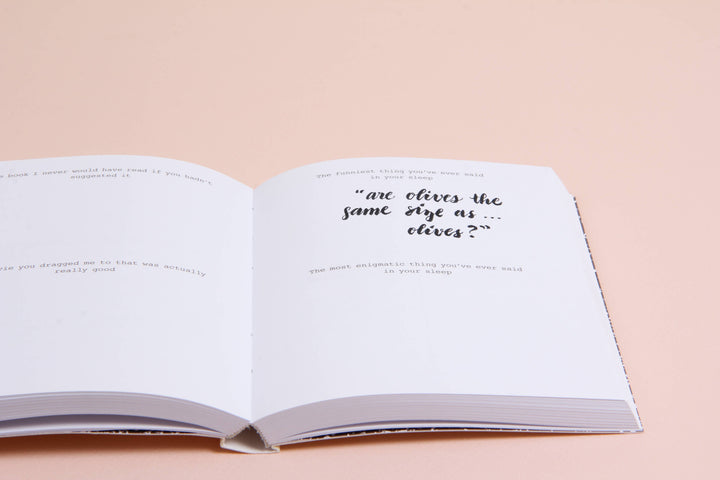 book I never would have read if you hadn't
suggested it
you dragged me to that was actually
really good
The funniest thing you've ever said
in your sleep
"are olives the
same size as ...
olives?"
The most enigmatic thing you've ever said
in your sleep